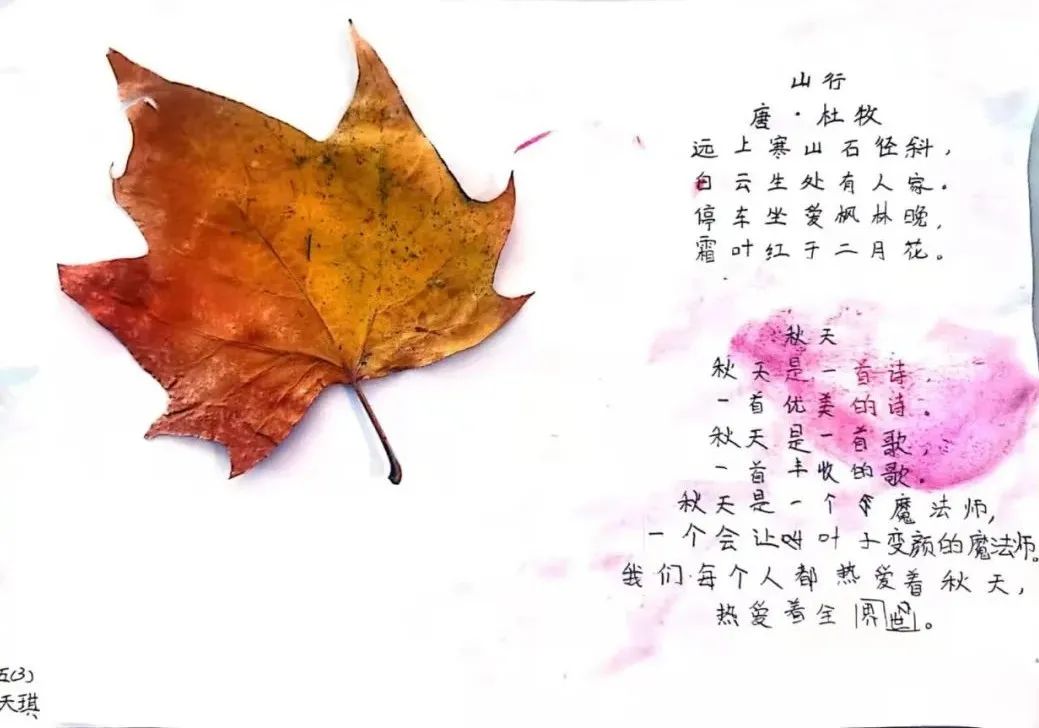 山行
唐·杜牧
远上寒山石径斜，
白云生处有人家。
停车坐爱枫林晚，
霜叶红于二月花。
秋天
秋天是一首诗，
一首优美的诗。
秋天是一首歌，
一首丰收的歌。
秋天是一个魔法师，
一个会让叶子变颜的魔法师。
我们每个人都热爱着秋天，
热爱着全界世。
五(3)
天琪